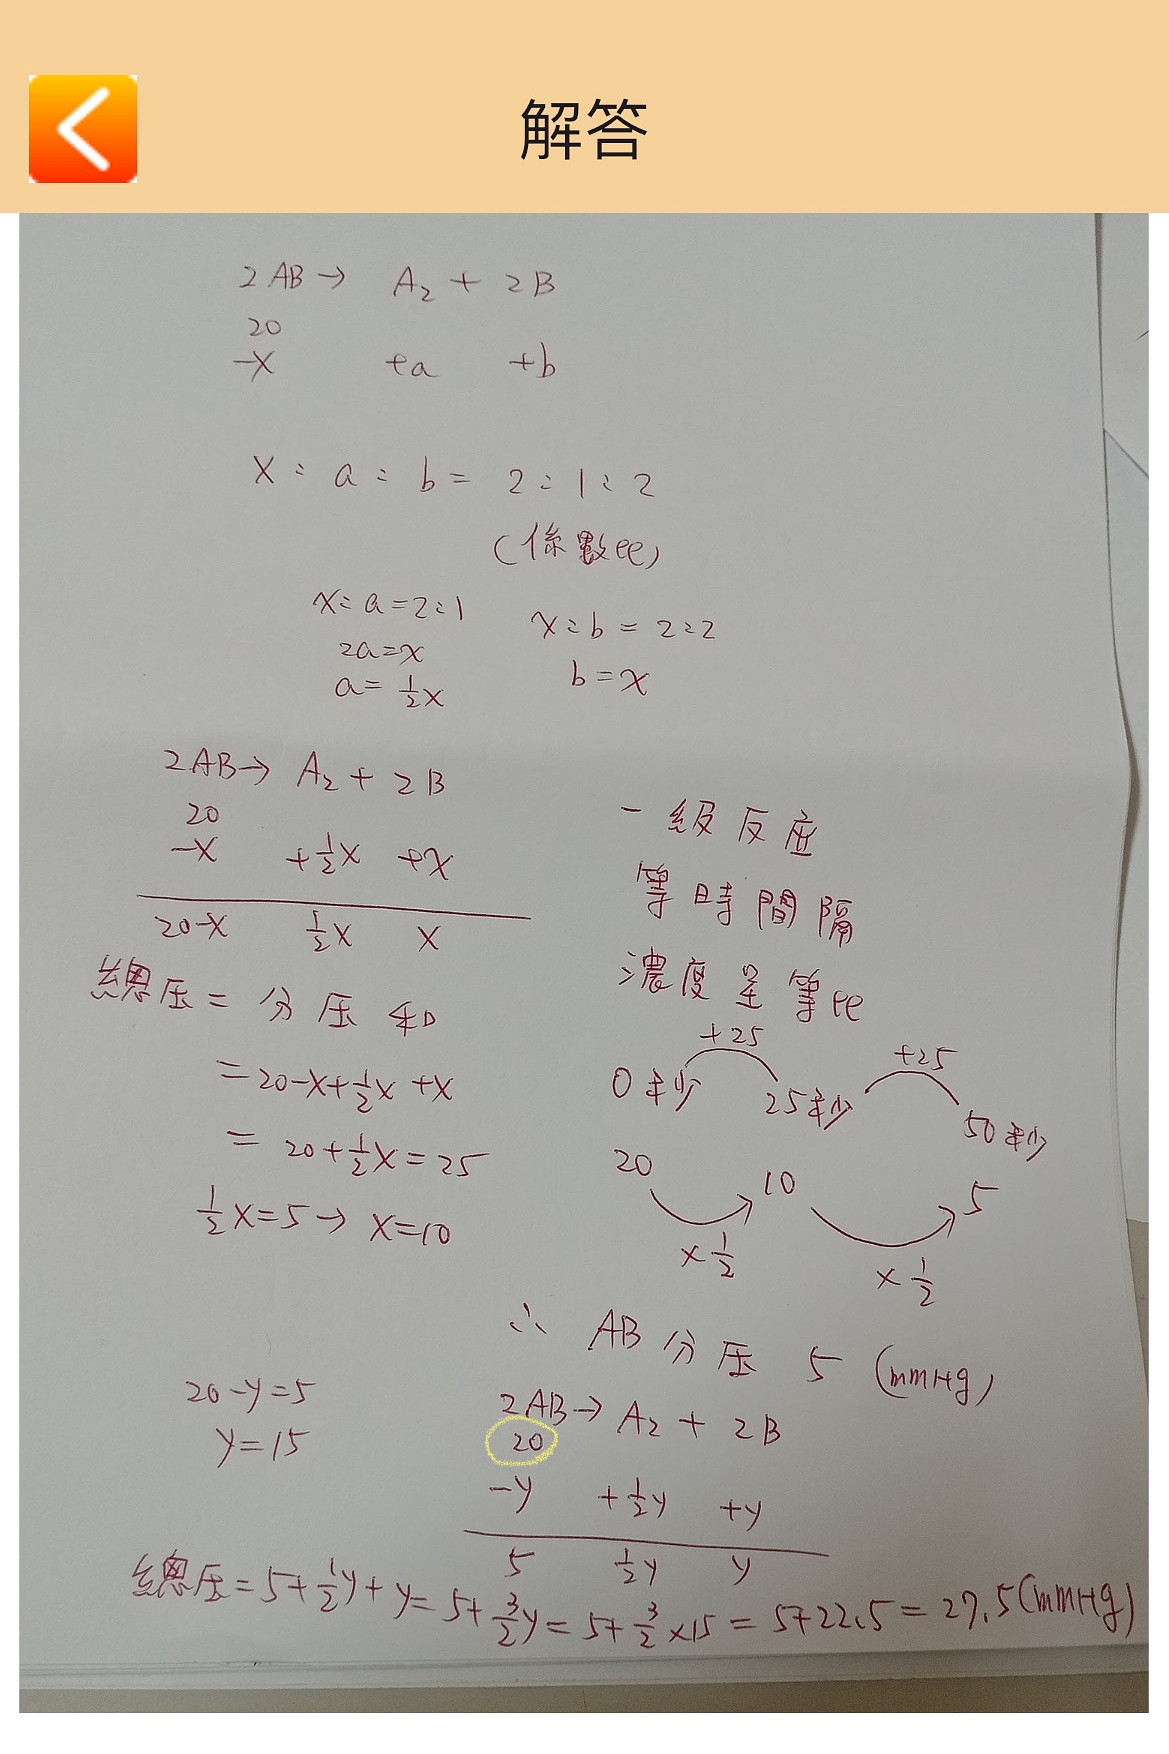 解答
2AB→ A₂ + 2B
20
-x +a +b
x : a : b = 2 : 1 : 2
(係數比)
x : a = 2 : 1
2a = x
a = 1/2 x
x : b = 2 : 2
b = x
2AB→ A₂ + 2B
20
-x +1/2x +x
20-x 1/2x x
總压 = 分压和
= 20-x+1/2x+x
= 20+1/2x = 25
1/2x=5→ x=10
一級反应
等時間隔
濃度呈等比
+25 +25
0秒 25秒 50秒
20 10 5
x 1/2 x 1/2
∴ AB 分压 5 (mmHg)
20-y=5
y=15
2AB→ A₂ + 2B
20
-y +1/2y +y
5 1/2y y
總压=5+1/2y+y=5+3/2y=5+3/2×15=5+22.5=27.5(mmHg)